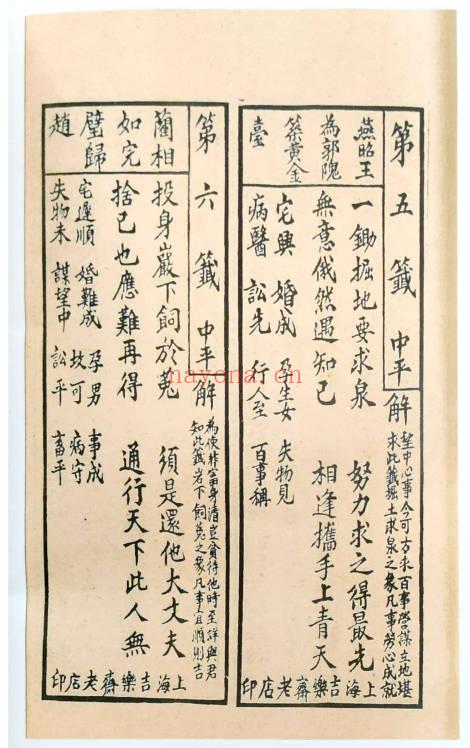 第五籤 中平
解
望中心事今可方求百事營謀立地堪
求此籤掘土求泉之象凡事勞心成就
燕昭王
為郭隗
築黃金
臺
一鋤掘地要求泉 努力求之得最先
無意儀然遇知己 相逢攜手上青天
宅興 婚成 孕生女 失物見
病醫 訟先 行人至 百事稱
上海吉樂齋老店印
第六籤 中平
解
為使非身清豈貧待他時至祥與君
知此籤岩下飼兔之象凡事宜順則吉
藺相
如完
璧歸
趙
投身巖下飼於菟 須是還他大丈夫
捨己也應難再得 通行天下此人無
宅遲順 婚難成 孕男 事成
坟可 病守
失物未 謀望中 訟平 畜平
上海吉樂齋老店印
nayona.cn